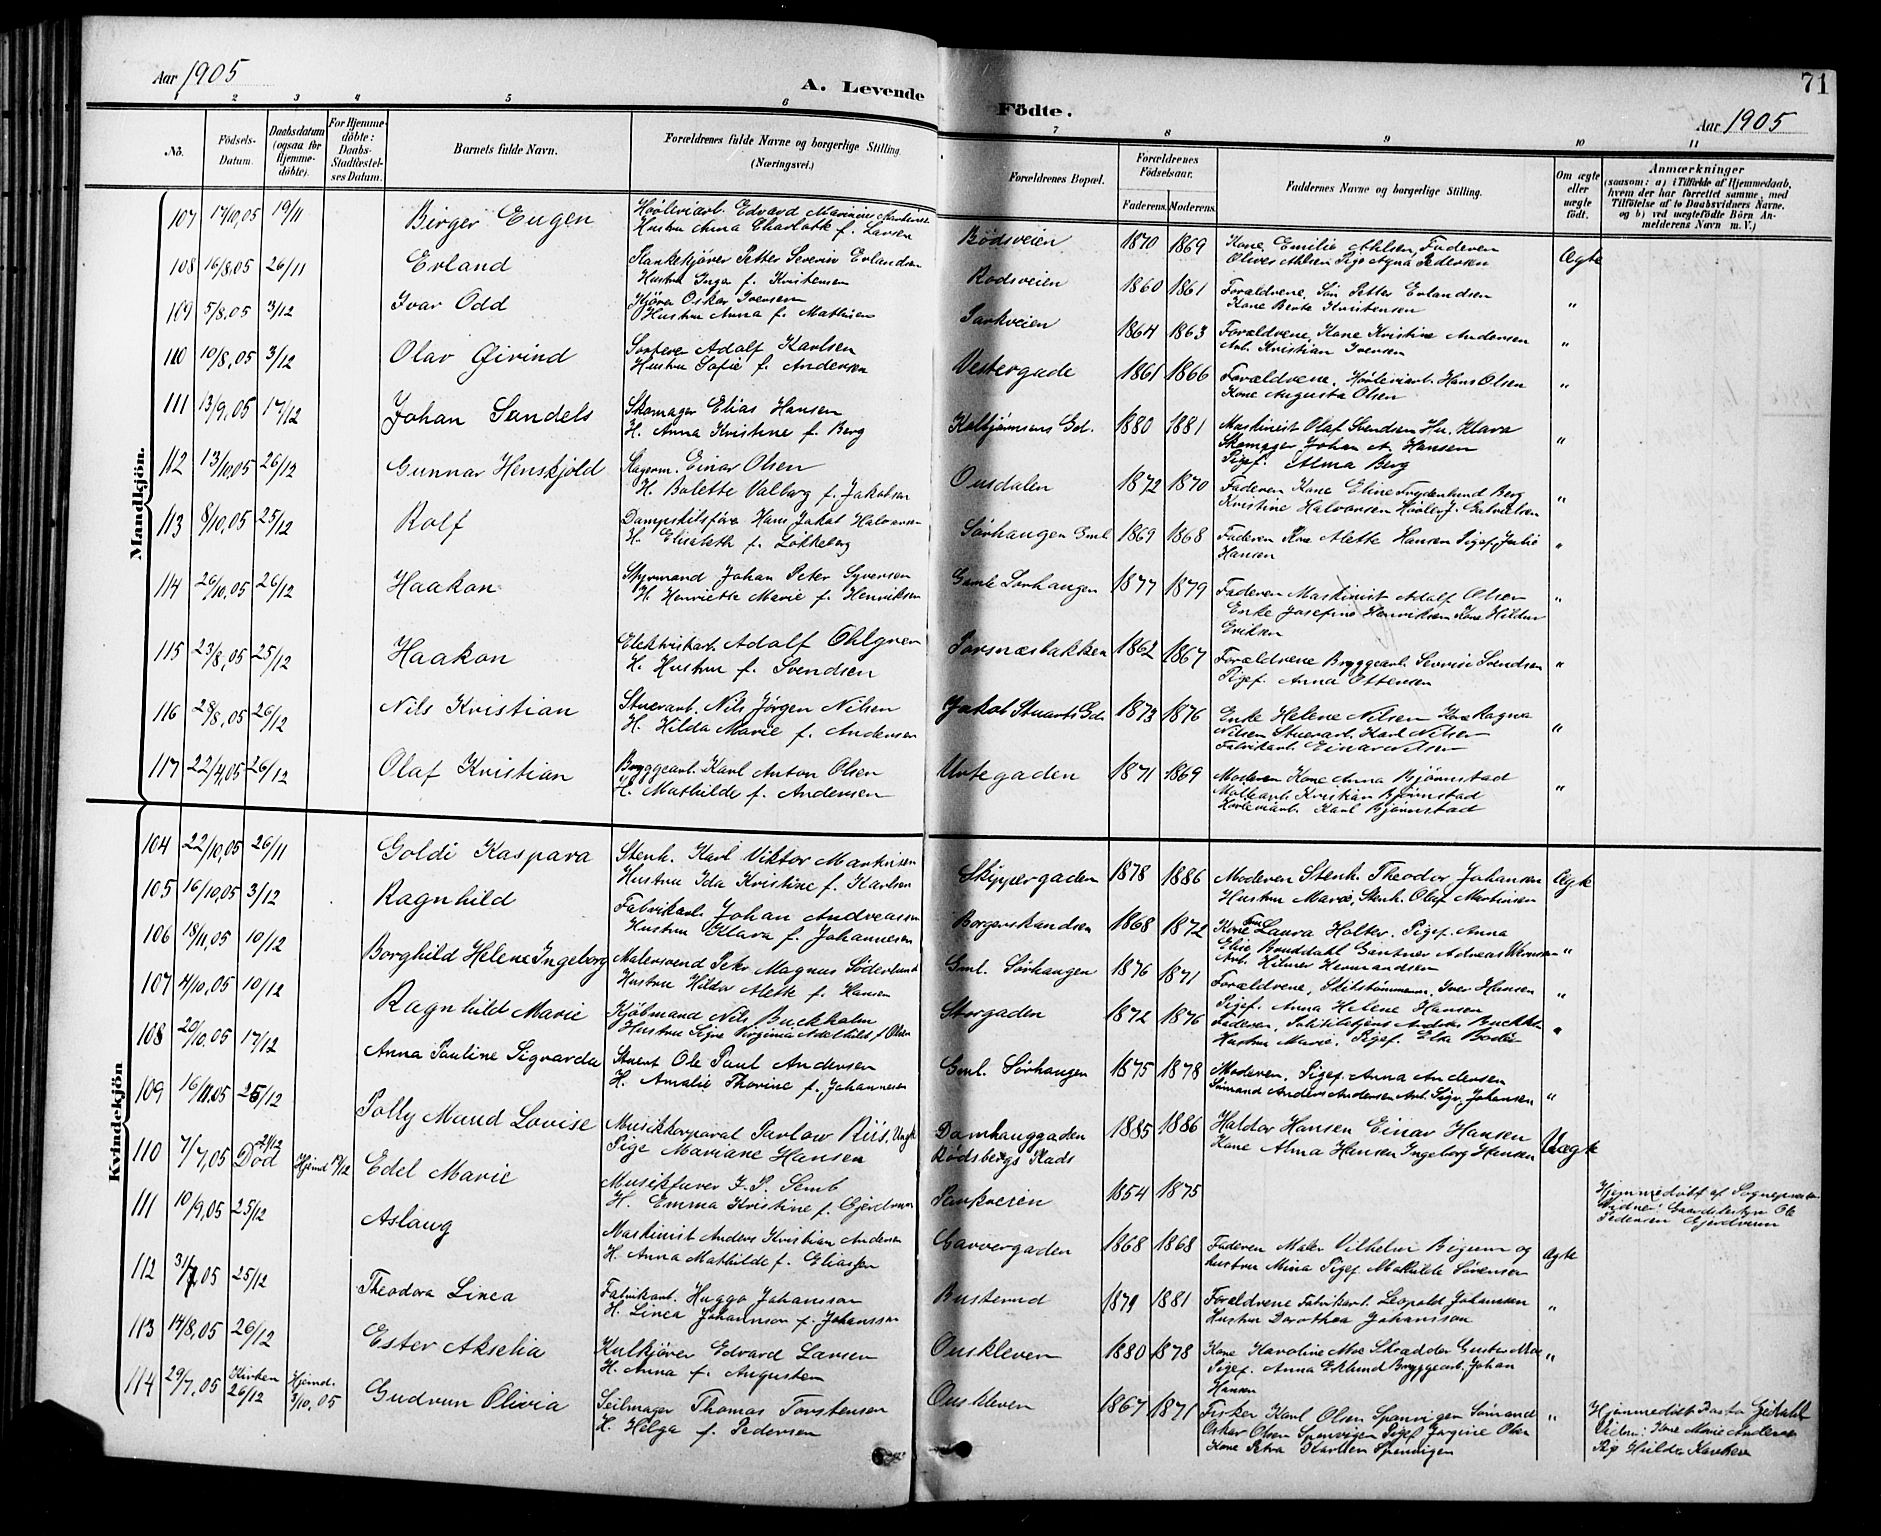 Aar 1905
A. Levende
Födte.
71
Aar 1905
1 2 3 4 5 6 7 8 9 10 11
No.
Födsels-Datum.
Daabsdatum (ogsaa for Hjemmedöbte).
For Hjemmedöbte: Daabs-Stadfæstelses Datum.
Barnets fulde Navn.
Forældrenes fulde Navne og borgerlige Stilling (Næringsvei.)
Forældrenes Bopæl.
Forældrenes Födselsaar.
Faderens. Moderens.
Faddernes Navne og borgerlige Stilling.
Om ægte eller uægte födt.
Anmærkninger
(saasom: a) i Tilfælde af Hjemmedaab, hvem der har forrettet samme, med Tilföielse af to Daabsvidners Navne. og b) ved uægtefödte Börn Anmelderens Navn m. V.)
Mandkjön.
107 17/10,05 19/11 Birger Eugen
Hustru Anna Charlotte f. Larsen
Rödsveien 1870 1869 Kone Emilie Ahlsen, Faderen
Olives Ahlsen Pige Agna Pedersen Ægte
108 16/8,05 26/11 Erland Plankekjörer Petter Severin Erlandsen
Hustru Inga f. Kristensen
Rödsveien 1860 1861 Forældrene, Sön Petter Erlandsen
Kone Berte Kristensen "
109 5/8,05 3/12 Ivar Odd Kjörer Oskar Iversen
Hustru Anna f. Mathisen
Parkveien 1864 1863 Forældrene, Kone Kristine Andersen
Arb. Kristian Iversen "
110 10/8,05 3/12 Olav Öivind Adolf Karlsen
Hustru Sofie f. Andersen
Vestergade 1861 1866 Forældrene, Hövleriarb. Hans Olsen
Kone Augusta Olsen "
111 13/9,05 17/12 Johan Sandels Skomager Elias Hansen
H. Anna Kristine f. Berg
Kolbjörnsens Gd. 1880 1881 Maskinist Olaf Svendsen Hu. Klara
Skomager Johan A. Hansen
Pigef. Alma Berg "
112 13/10,05 26/12 Gunnar Henskjold Einar Olsen
H. Bolette Valborg f. Jakobsen
Ousdalen 1872 1870 Faderen Kone Eline Frydenlund Berg
Kristine Halvorsen "
113 8/10,05 25/12 Rolf Dampskibsförer Hans Jakob Halvorsen
H. Elisabeth f. Lökkeberg
Sörhaugen Gml 1869 1868 Faderen Kone Alette Hansen Pigef. Julie
Hansen "
114 26/10,05 26/12 Haakon Styrmand Johan Peter Syversen
H. Henriette Marie f. Henriksen
Gamle Sörhaugen 1877 1879 Faderen Maskinist Adolf Olsen
Enke Josefine Henriksen Kone Hilda
Eriksen "
115 23/8,05 25/12 Haakon Elektriskarb. Adolf Ohlgren
H. Hustru f. Svendsen
Porsnæsbakken 1862 1867 Forældrene Bryggearb. Severin Svendsen
Pigef. Anna Ottersen "
116 28/8,05 26/12 Nils Kristian Stuerarb. Nils Jörgen Nilsen
H. Hilda Marie f. Andersen
Jakob Stuarts Gd. 1873 1876 Enke Helene Nilsen Kone Ragna
Nilsen Stuerarb. Karl Nilsen
Fabrikarb. Einar Nilsen "
117 22/4,05 26/12 Olaf Kristian Bryggearb. Karl Anton Olsen
H. Mathilde f. Andersen
Urtegaden 1871 1869 Moderen Kone Anna Björnstad
Kristian Björnstad
Hövleriarb. Karl Björnstad "
Kvindekjön
104 22/10,05 26/11 Goldi Kaspara Stenh. Karl Viktor Martinsen
Hustru Ida Kristine f. Karlsen
Skippergaden 1878 1886 Moderen Stenh. Theodor Johansen
Hustru Marie, Stenh. Olaf Martinsen Ægte
105 16/10,05 3/12 Ragnhild Fabrikarb. Johan Andreassen
Hustru Klara f. Johannesen
Borgerskandsen 1868 1872 Kone Fru Laura Holter. Pigef. Anna
Elise Bruddahl Gartner Andreas
Arb. Hilmer Hermandsen "
106 18/11,05 10/12 Borghild Helene Ingeborg Malersvend Peter Magnus Söderlund
Hustru Hilda Alette f. Hansen
Gml. Sörhaugen 1876 1871 Forældrene, Skibstömmerm. Iver Hansen
Pigef. Anna Helene Hansen "
107 4/10,05 10/12 Ragnhild Marie Kjöbmand Nils Buckholm
Hustru Virginia f Olsen
Storgaden 1872 1876 Faderen, Politibetjent Anders
Hustru Marie, Pigef. Elsa "
108 20/10,05 17/12 Anna Pauline Sigvarda Stuert Ole Paul Andersen
H. Amalie Thorine f. Johannesen
Gml. Sörhaugen 1875 1878 Moderen, Pigef. Anna Andersen
Sömand Anders Andersen Arb. Sigv. Johansen "
109 16/11.05 25/12 Polly Maud Lovise Musikkorporal Pavlow Riis, Ungk
Pige Mariane Hansen
Damhauggaden
Rödsbergs Plads 1885 1886 Haldor Hansen Einar Hansen
Kone Alma Hansen Ingeborg Hansen Uægte
110 7/7,05 Död 24/12 Hjemd Edel Marie Musikfurer J. P. Semb
H. Emma Kristine f. Gjerdrum
Parkveien 1854 1875
Hjemmedöbt af Sognepresten
Ole
Pedersen Gjerdrum
111 10/9,05 25/12 Aslaug Maskinist Anders Kristian Andersen
H. Anna Mathilde f. Eliassen
Garvergaden 1868 1868 Faderen Maler Vilhelm Bigum og
hustru Mina Pigef. Mathilde Sörensen Ægte
112 31/7,05 25/12 Theodora Linea Fabrikarb. Hugo Johansson
H. Linea Johannson f. Johansson
Busterud 1879 1881 Forældrene Fabrikarb. Leopold Johansson
Hustru Dorothea Johansson "
113 14/8,05 26/12 Ester Akselia Kulkjörer Edvard Larsen
H. Anna f. Augusten
Ouskleven 1880 1878 Kone Karoline Moe Skrædder Gustav Moe
Pigef. Anna Eklund Bryggearb. Johan
Hansen "
114 29/7,05 Kirken 26/12 Hjemd. 3/10,05 Gudrun Olivia Seilmager Thomas Torstensen
H. Helga f. Pedersen
Ouskleven 1867 1871 Fisker Karl Olsen Spanvigen Sömand
Oskar Olsen Spanvigen Pigef Jörgine Olsen
Kone Petra Karlsen Spanvigen "
Hjemmedöbt
Vidn: Kone Marie Andersen
Pig Hulda Karlsen